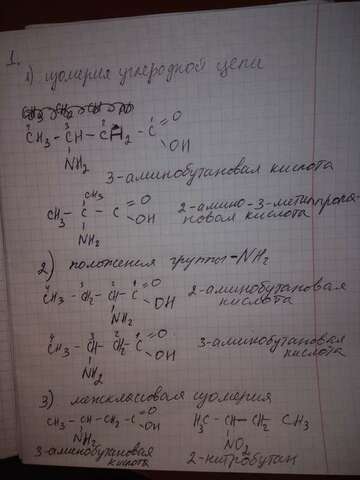 1.
1) изомерия углеродной цепи
CH3 - CH - CH2 - C O OH
4 3 2 1
NH2
3-аминобутановая кислота
CH3
CH3 - C - C O OH
NH2
2-амино-3-метилпропа-
новая кислота
2) положения группы -NH2
CH3 - CH2 - CH - C O OH
4 3 2 1
NH2
2-аминобутановая
кислота
CH3 - CH - CH2 - C O OH
4 3 2 1
NH2
3-аминобутановая
кислота
3) межкласовая изомерия
CH3 - CH - CH2 - C O OH
NH2
3-аминобутановая
кислота
H3C - CH - CH2 CH3
NO2
2-нитробутан